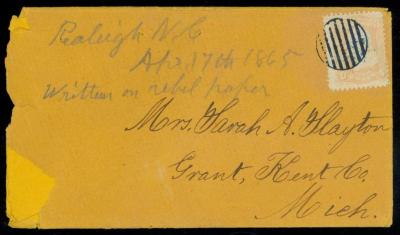 Raleigh N.C
Apr. 17th 1865
Written on rebel paper
Mrs. Sarah A. Slayton
Grant, Kent Co.
Mich.